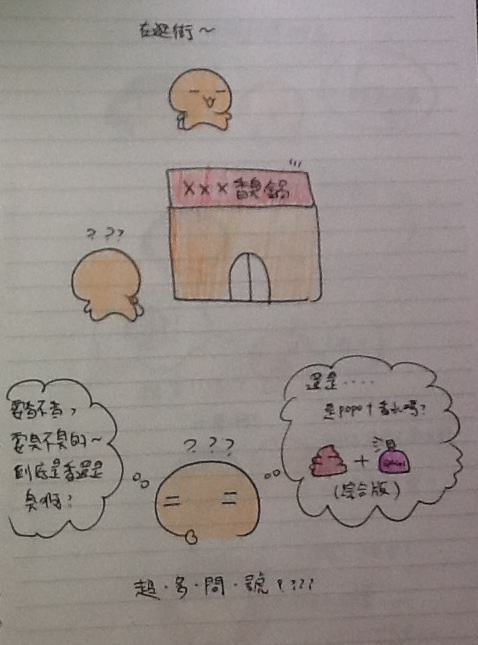 在逛街～
XXX香臭鍋
???
要香不香，
要臭不臭的～
到底是香還是
臭啊?
???
還是....
是popo+香水嗎?
+
(綜合版)
超·多·問·號????